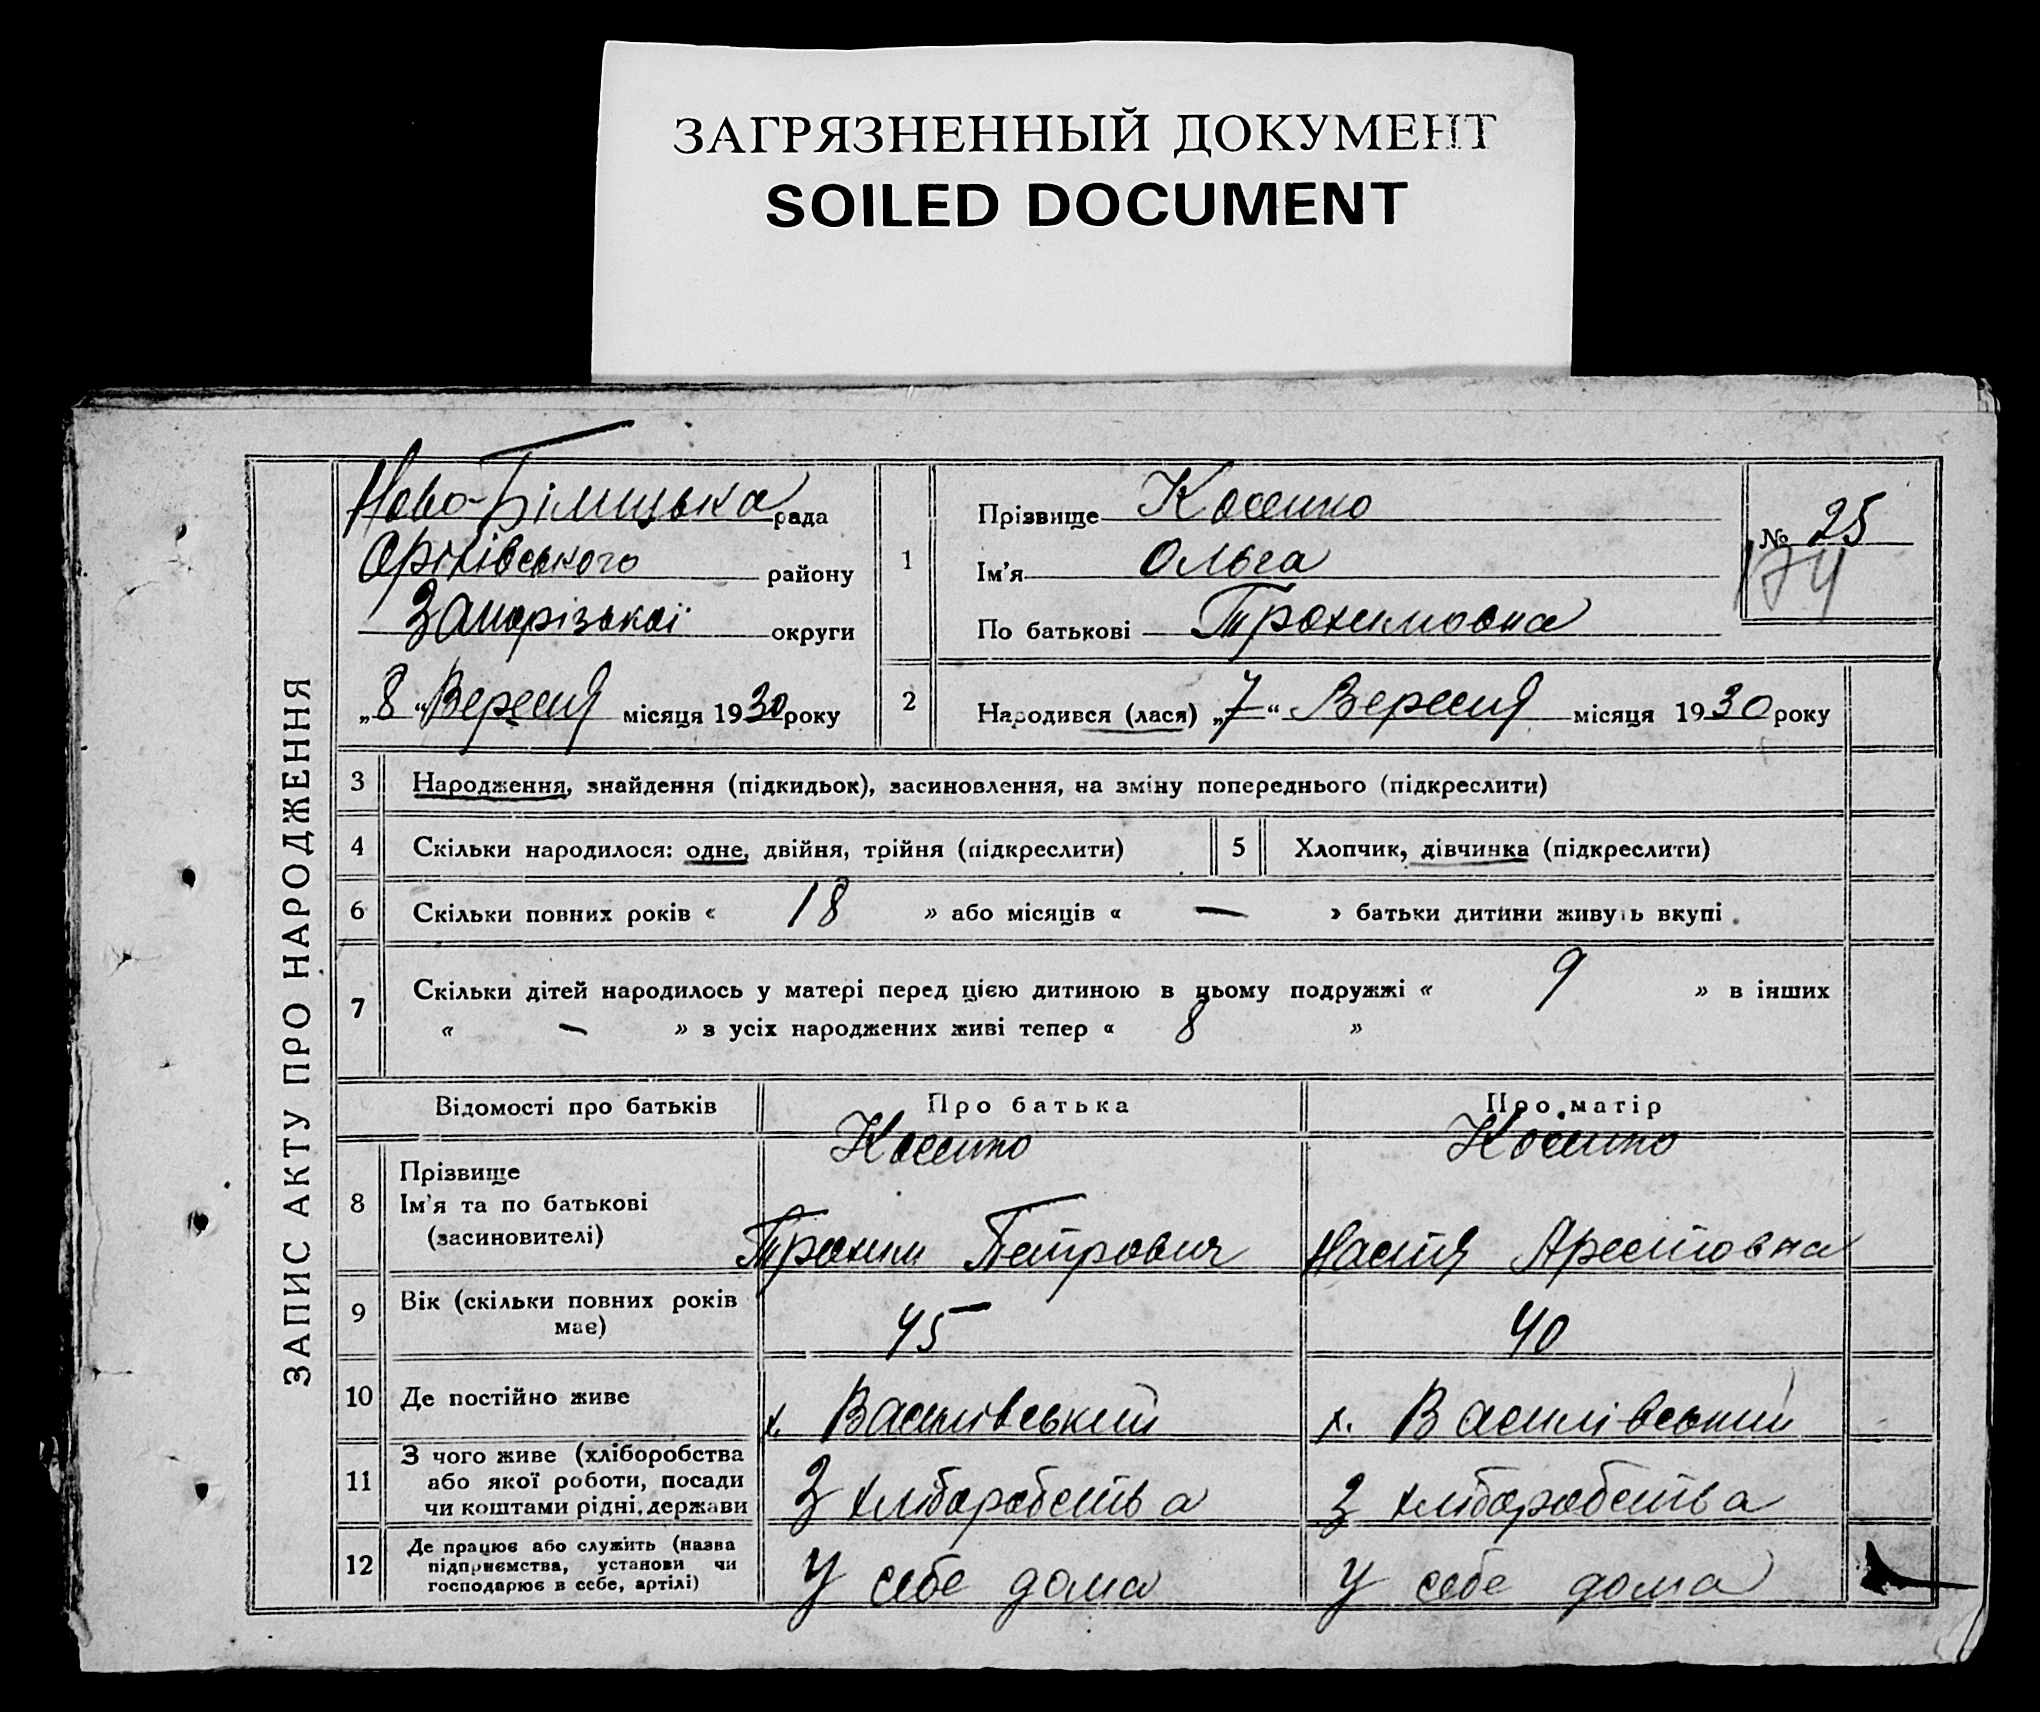 ЗАГРЯЗНЕННЫЙ ДОКУМЕНТ
SOILED DOCUMENT
ЗАПИС АКТУ ПРО НАРОДЖЕННЯ
рада
Оріхівського району
Запорізької округи
„8“ Вересня місяця 1930 року
1
Прізвище
Ім'я Ольга
По батькові Трохимовна
№ 25
174
2
Народився (лася) „7“ Вересня місяця 1930 року
3 Народження, знайдення (підкидьок), засиновлення, на зміну попереднього (підкреслити)
4 Скільки народилося: одне, двійня, трійня (підкреслити)
5 Хлопчик, дівчинка (підкреслити)
6 Скільки повних років « 18 » або місяців « — » батьки дитини живуть вкупі
7 Скільки дітей народилось у матері перед цією дитиною в цьому подружжі « 9 » в інших
« — » з усіх народжених живі тепер « 8 »
Відомості про батьків Про батька Про матір
8 Прізвище
Ім'я та по батькові
(засиновителі)
Трохим Петрович Настя Арестовна
9 Вік (скільки повних років
має)
45 40
10 Де постійно живе х. Василівський х. Василівський
11 З чого живе (хліборобства
або якої роботи, посади
чи коштами рідні, держави
З хліборобства З хліборобства
12 Де працює або служить (назва
підприємства, установи чи
господарює в себе, артілі)
У себе дома У себе дома